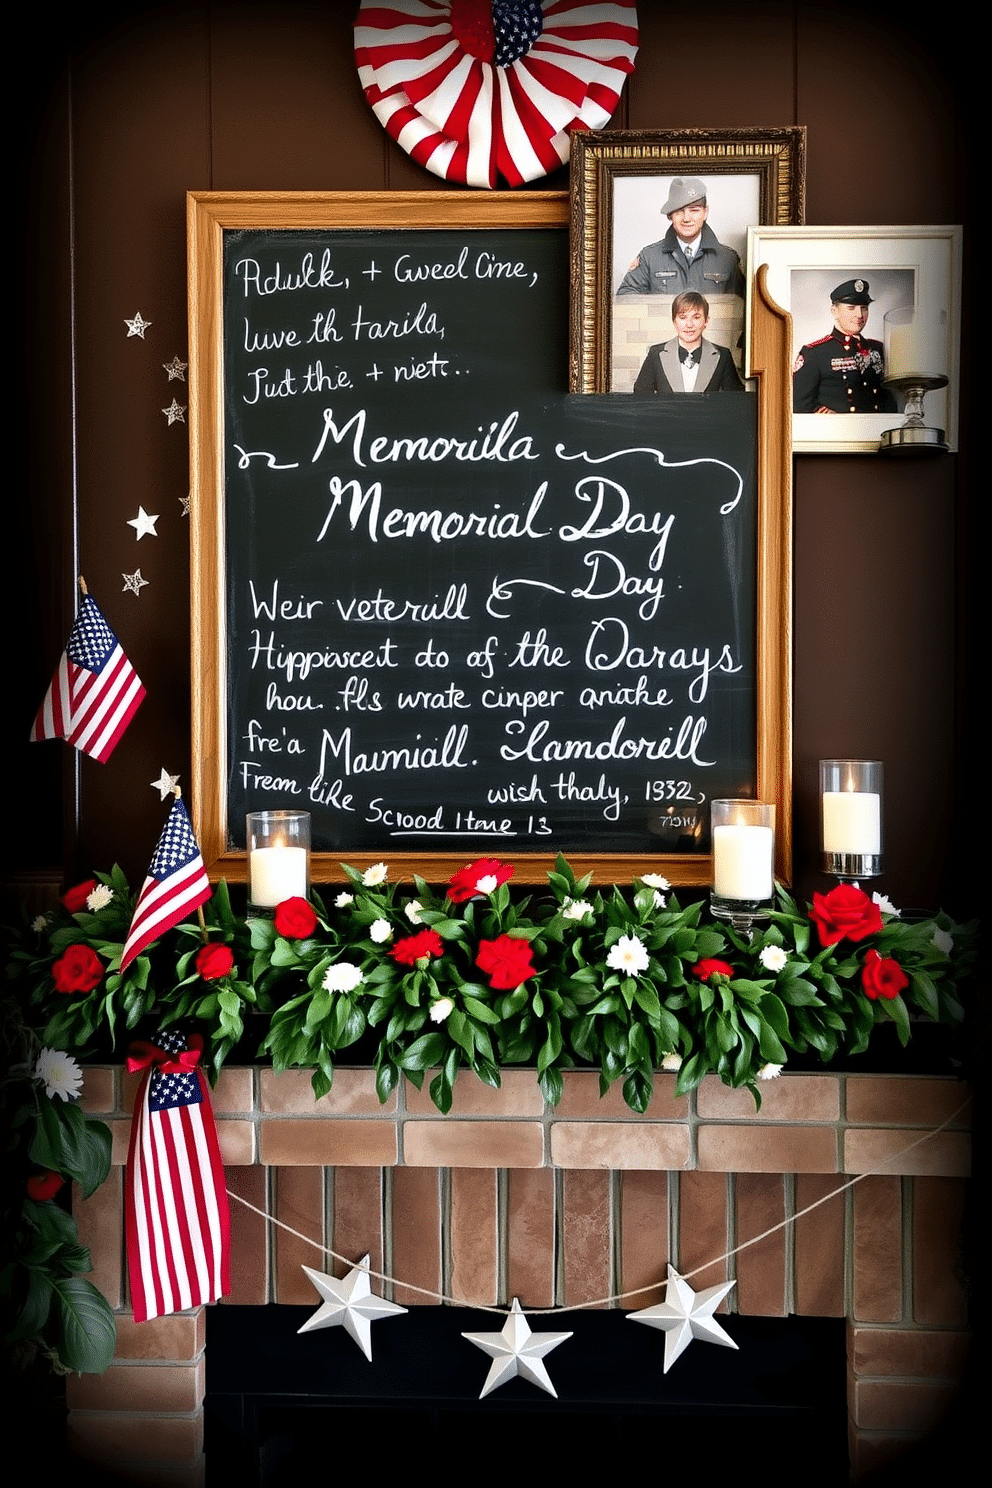 Rdulk, + Gweel Cine,
luve th tarila,
Just the. + niet..
Memoriila
Memorial Day
Day.
Weir veterull &
Hippiascet do of the Oarays
hou. .fls wrate cinper anithe
fre'a Maumiall. Slamdorell
From like wish thaly, 1932,
Scood Itme 13